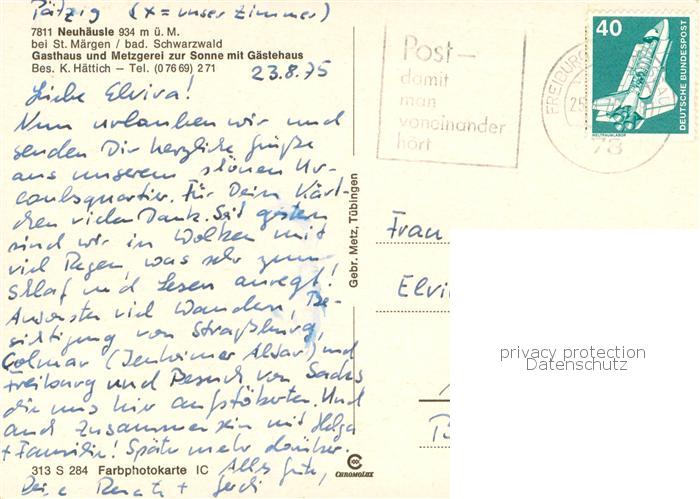 Pätzig (x = unser Zimmer)
7811 Neuhäusle 934 m ü. M.
bei St. Märgen / bad. Schwarzwald
Gasthaus und Metzgerei zur Sonne mit Gästehaus
Bes. K. Hättich – Tel. (0 76 69) 2 71
23.8.75
Liebe Elvira!
Nun urlauben wir und
senden Dir herzliche Grüße
aus unserem schönen Ur-
laubsquartier. Für Dein Kärt-
chen vielen Dank. Seit gestern
sind wir in Wolken mit
viel Regen, was sehr zum
Schlaf und Lesen anregt!
Ansonsten viel Wandern, Be-
sichtigung von Straßburg,
Colmar (Isenheimer Altar) und
Freiburg und Besuch von
die uns hier aufstöberten. Und
auch Zusammensein mit Helga
+ Familie! Später mehr darüber.
Alles Gute,
Deine Renate + Gerdi
313 S 284 Farbphotokarte IC
CHROMOLUX
Gebr. Metz, Tübingen
Post –
damit
man
voneinander
hört
FREIBURG
25
78
40
DEUTSCHE BUNDESPOST
WELTRAUMLABOR
Frau
Elvi
privacy protection
Datenschutz